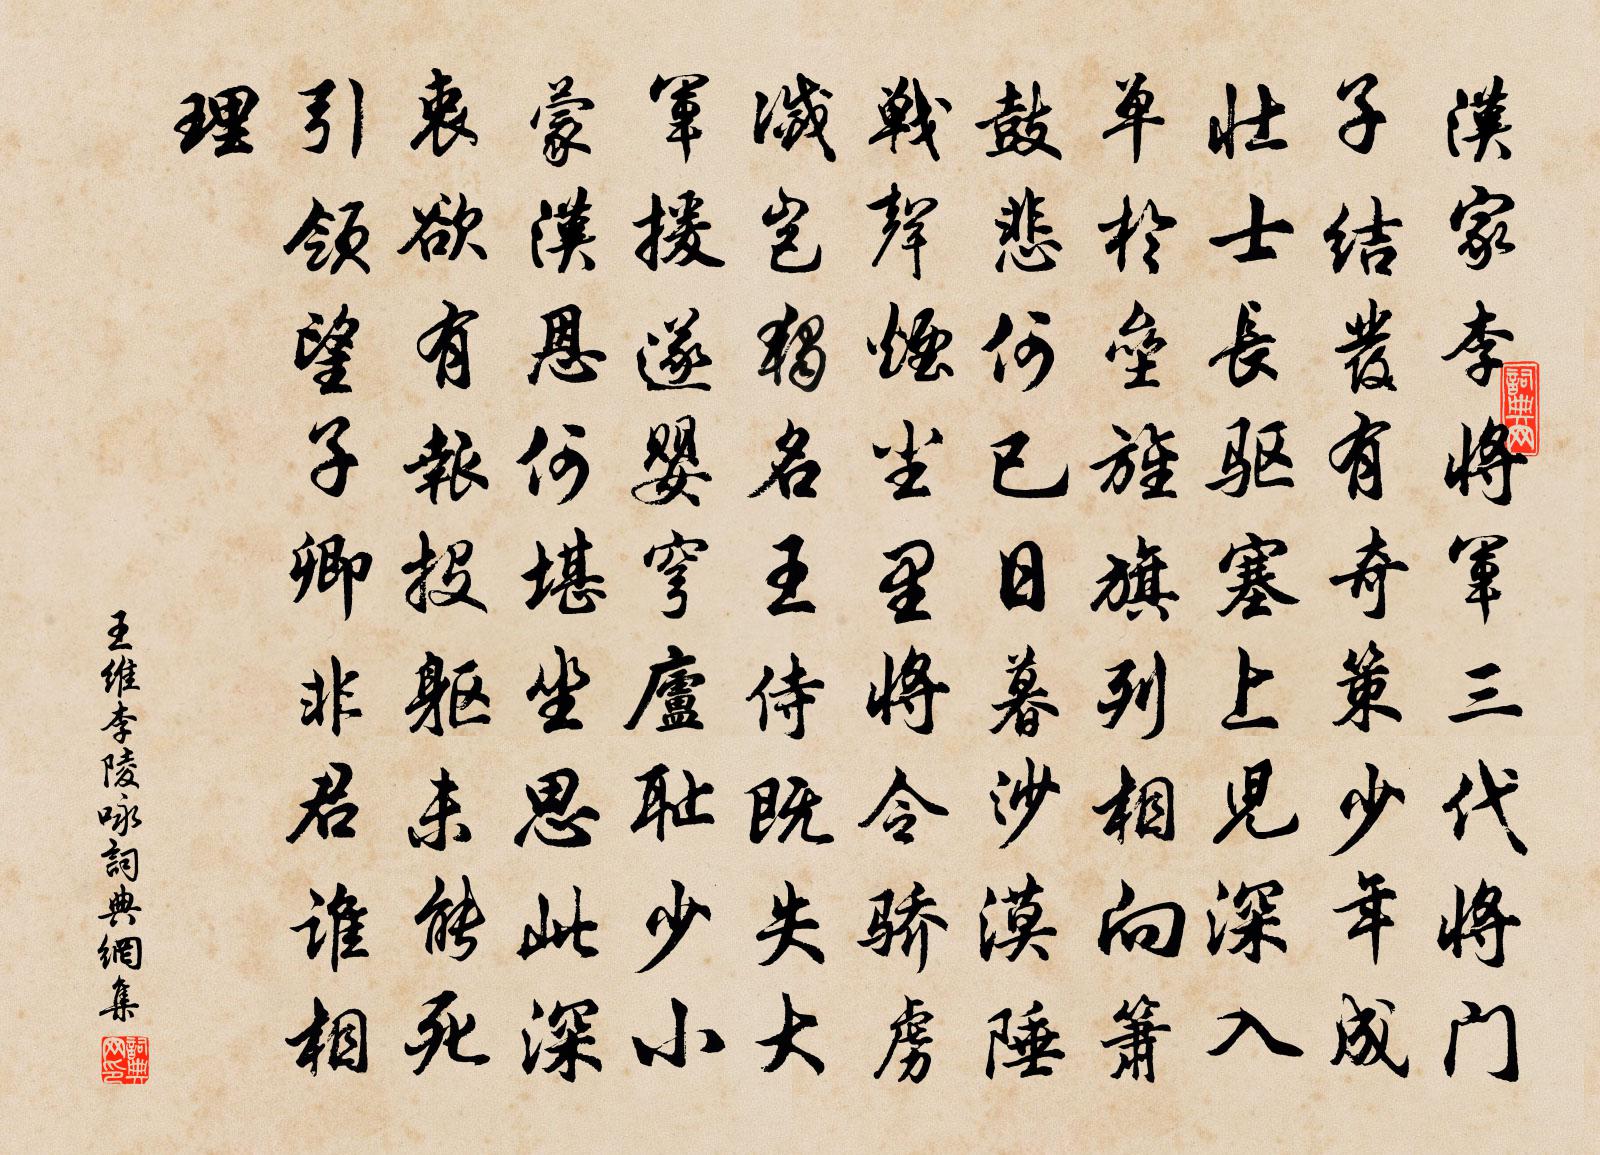 漢家李将軍三代将門
子結發有奇策少年成
壮士長驱塞上児深入
单於垒旌旗列相向簫
鼓悲何已日暮沙漠陲
戦聲煙尘里将令骄虜
滅豈獨名王侍既失大
軍援遂嬰穹廬耻少小
蒙漢恩何堪坐思此深
衷欲有報投躯未能死
引領望子卿非君谁相
理
王維李陵咏詞典網集
詞典网
詞典网印